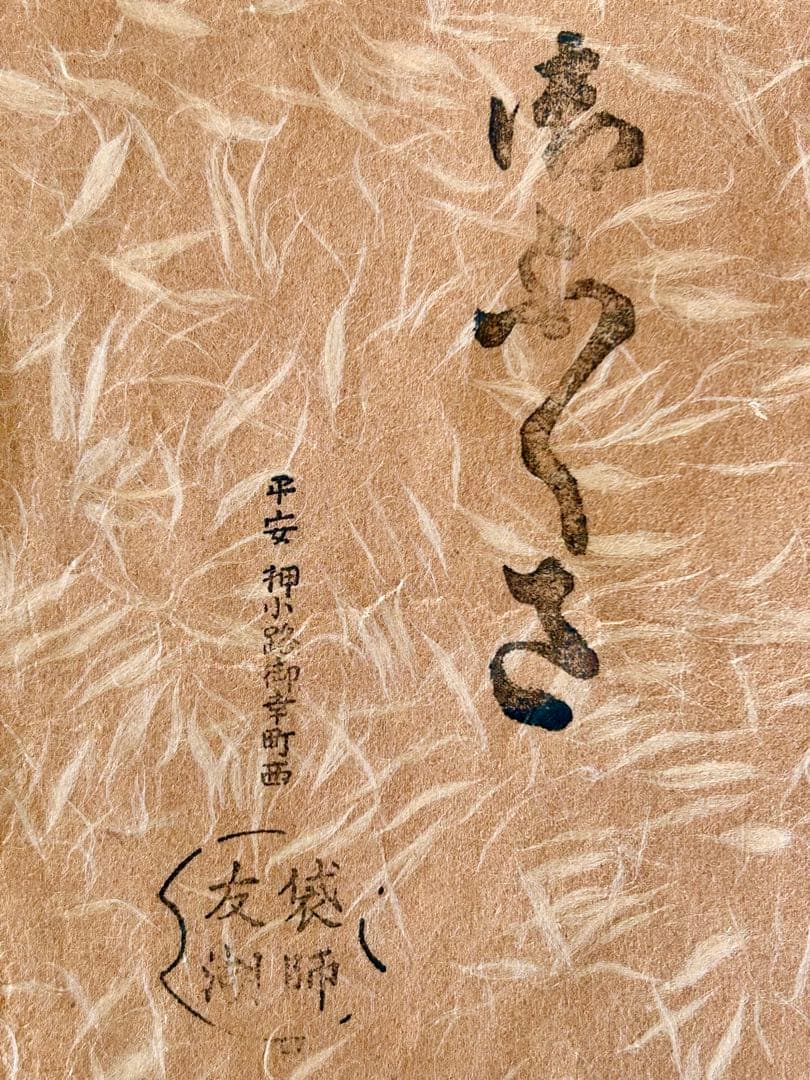 御ふくさ
平安 押小路御幸町西
袋師
友湖